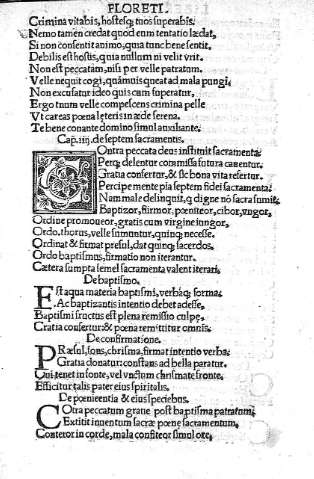 FLORETI.
Crimina vitabis, hostesq; tuos superabis.
Nemo tamen credat quod eum tentatio lædat,
Si non consentit animo, quia tunc bene sentit.
Debilis est hostis, quia nullum ni velit vrit.
Non est peccatam, nisi per velle patratum.
Velle nequit cogi, quāmuis queat ad mala pungi,
Non excusatur ideo quis cum superatur,
Ergo tuum velle compescens crimina pelle
Vt careas pœna leteris in æde serena.
Te bene conante domino simul auxiliante.
Cap. iiij. de septem sacramentis.
COntra peccata deus instituit sacramenta:
Perq; delentur cōmissa futura cauentur.
Gratia consertur, & sic bona vita resertur.
Percipe mente pia septem fidei sacramenta:
Nam male delinquit, q digne nō sacra sumit.
Baptizor, firmor, pœniteor, cibor, vngor,
Ordine promoueor, gratis cum virgine iungor,
Ordo, thorus, velle sumuntur, quinq; necesse.
Ordinat & firmat presul, dat quinq; sacerdos.
Ordo baptismus, firmatio non iterantur.
Cætera sumpta semel sacramenta valent iterari.
De baptismo.
ESt aqua materia baptismi, verbāq; forma:
Ac baptizantis intentio debet adesse,
Baptismi fructus est plena remissio culpę,
Gratia consertur: & pœna remittitur omnis.
De confirmatione.
PRæsul, fons, chrisma, firmat intentio verba:
Gratia donatur: constans ad bella paratur.
Qui tenet in fonte, vel vnctum chrismate fronte,
Efficitur talis pater eius spiritalis.
De pœnitentia & eius speciebus.
COtra peccatum graue post baptisma patratum:
Extitit inuentum sacræ pœnę sacramentum,
Conteror in corde, mala confiteor simul ore,